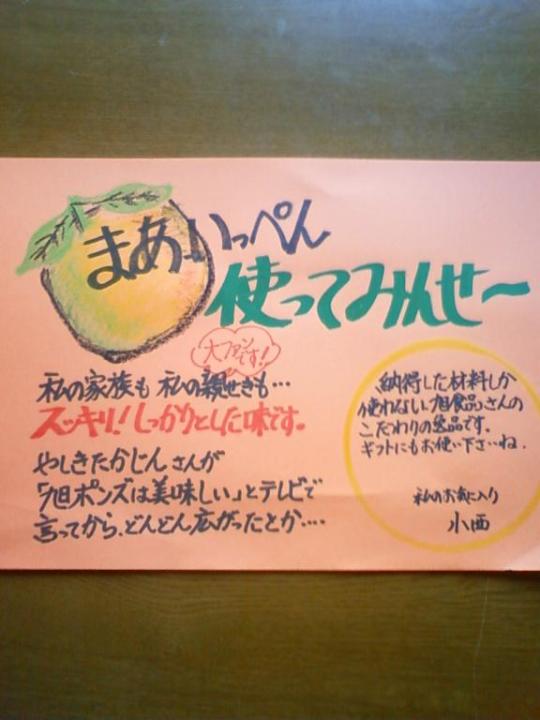 まあいっぺん
使ってみんせ〜
大ファンです！
私の家族も 私の親せきも…
スッキリ！しっかりとした味です。
やしきたかじんさんが
「旭ポンズは美味しい」とテレビで
言ってから、どんどん広がったとか….
納得した材料しか
使わない、旭食品さんの
こだわりの逸品です。
ギフトにもお使い下さいね.
私のお気に入り
小西